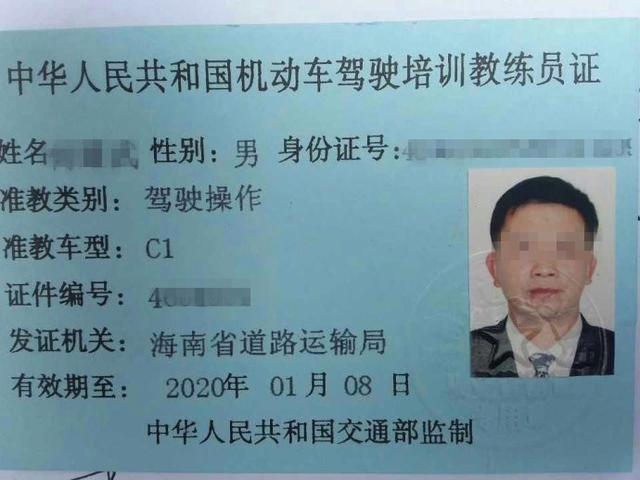 中华人民共和国机动车驾驶培训教练员证
姓名 性别: 男 身份证号:
准教类别: 驾驶操作
准教车型: C1
证件编号:
发证机关: 海南省道路运输局
有效期至: 2020年 01月 08日
中华人民共和国交通部监制